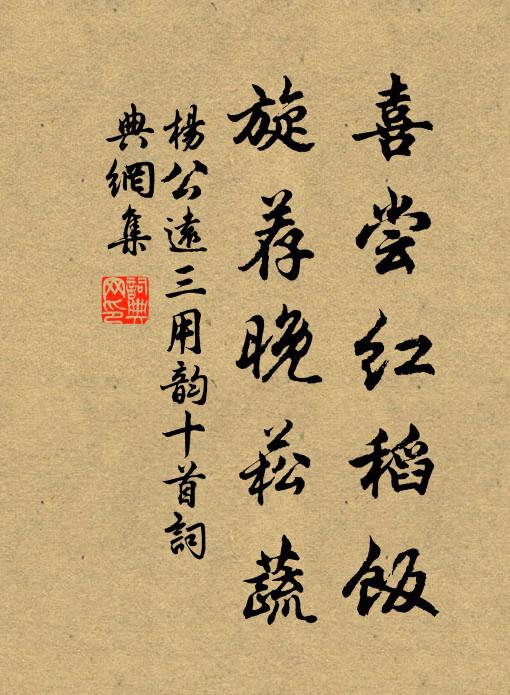 喜尝红稻饭
旋荐晚菘蔬
杨公远三用韵十首词
典網集
詞典網印